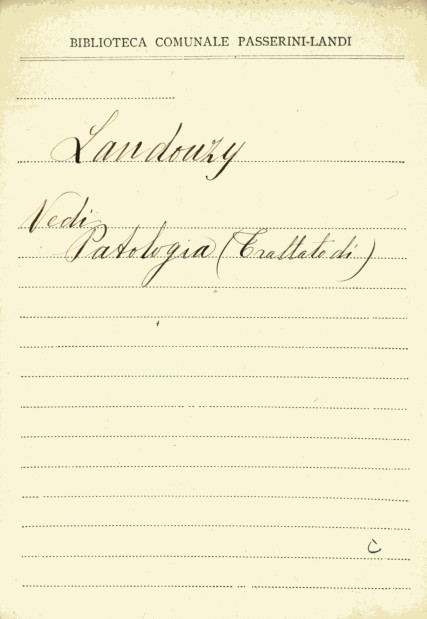 BIBLIOTECA COMUNALE PASSERINI-LANDI
Landouzy
Vedi
Patologia (Trattato di)
C